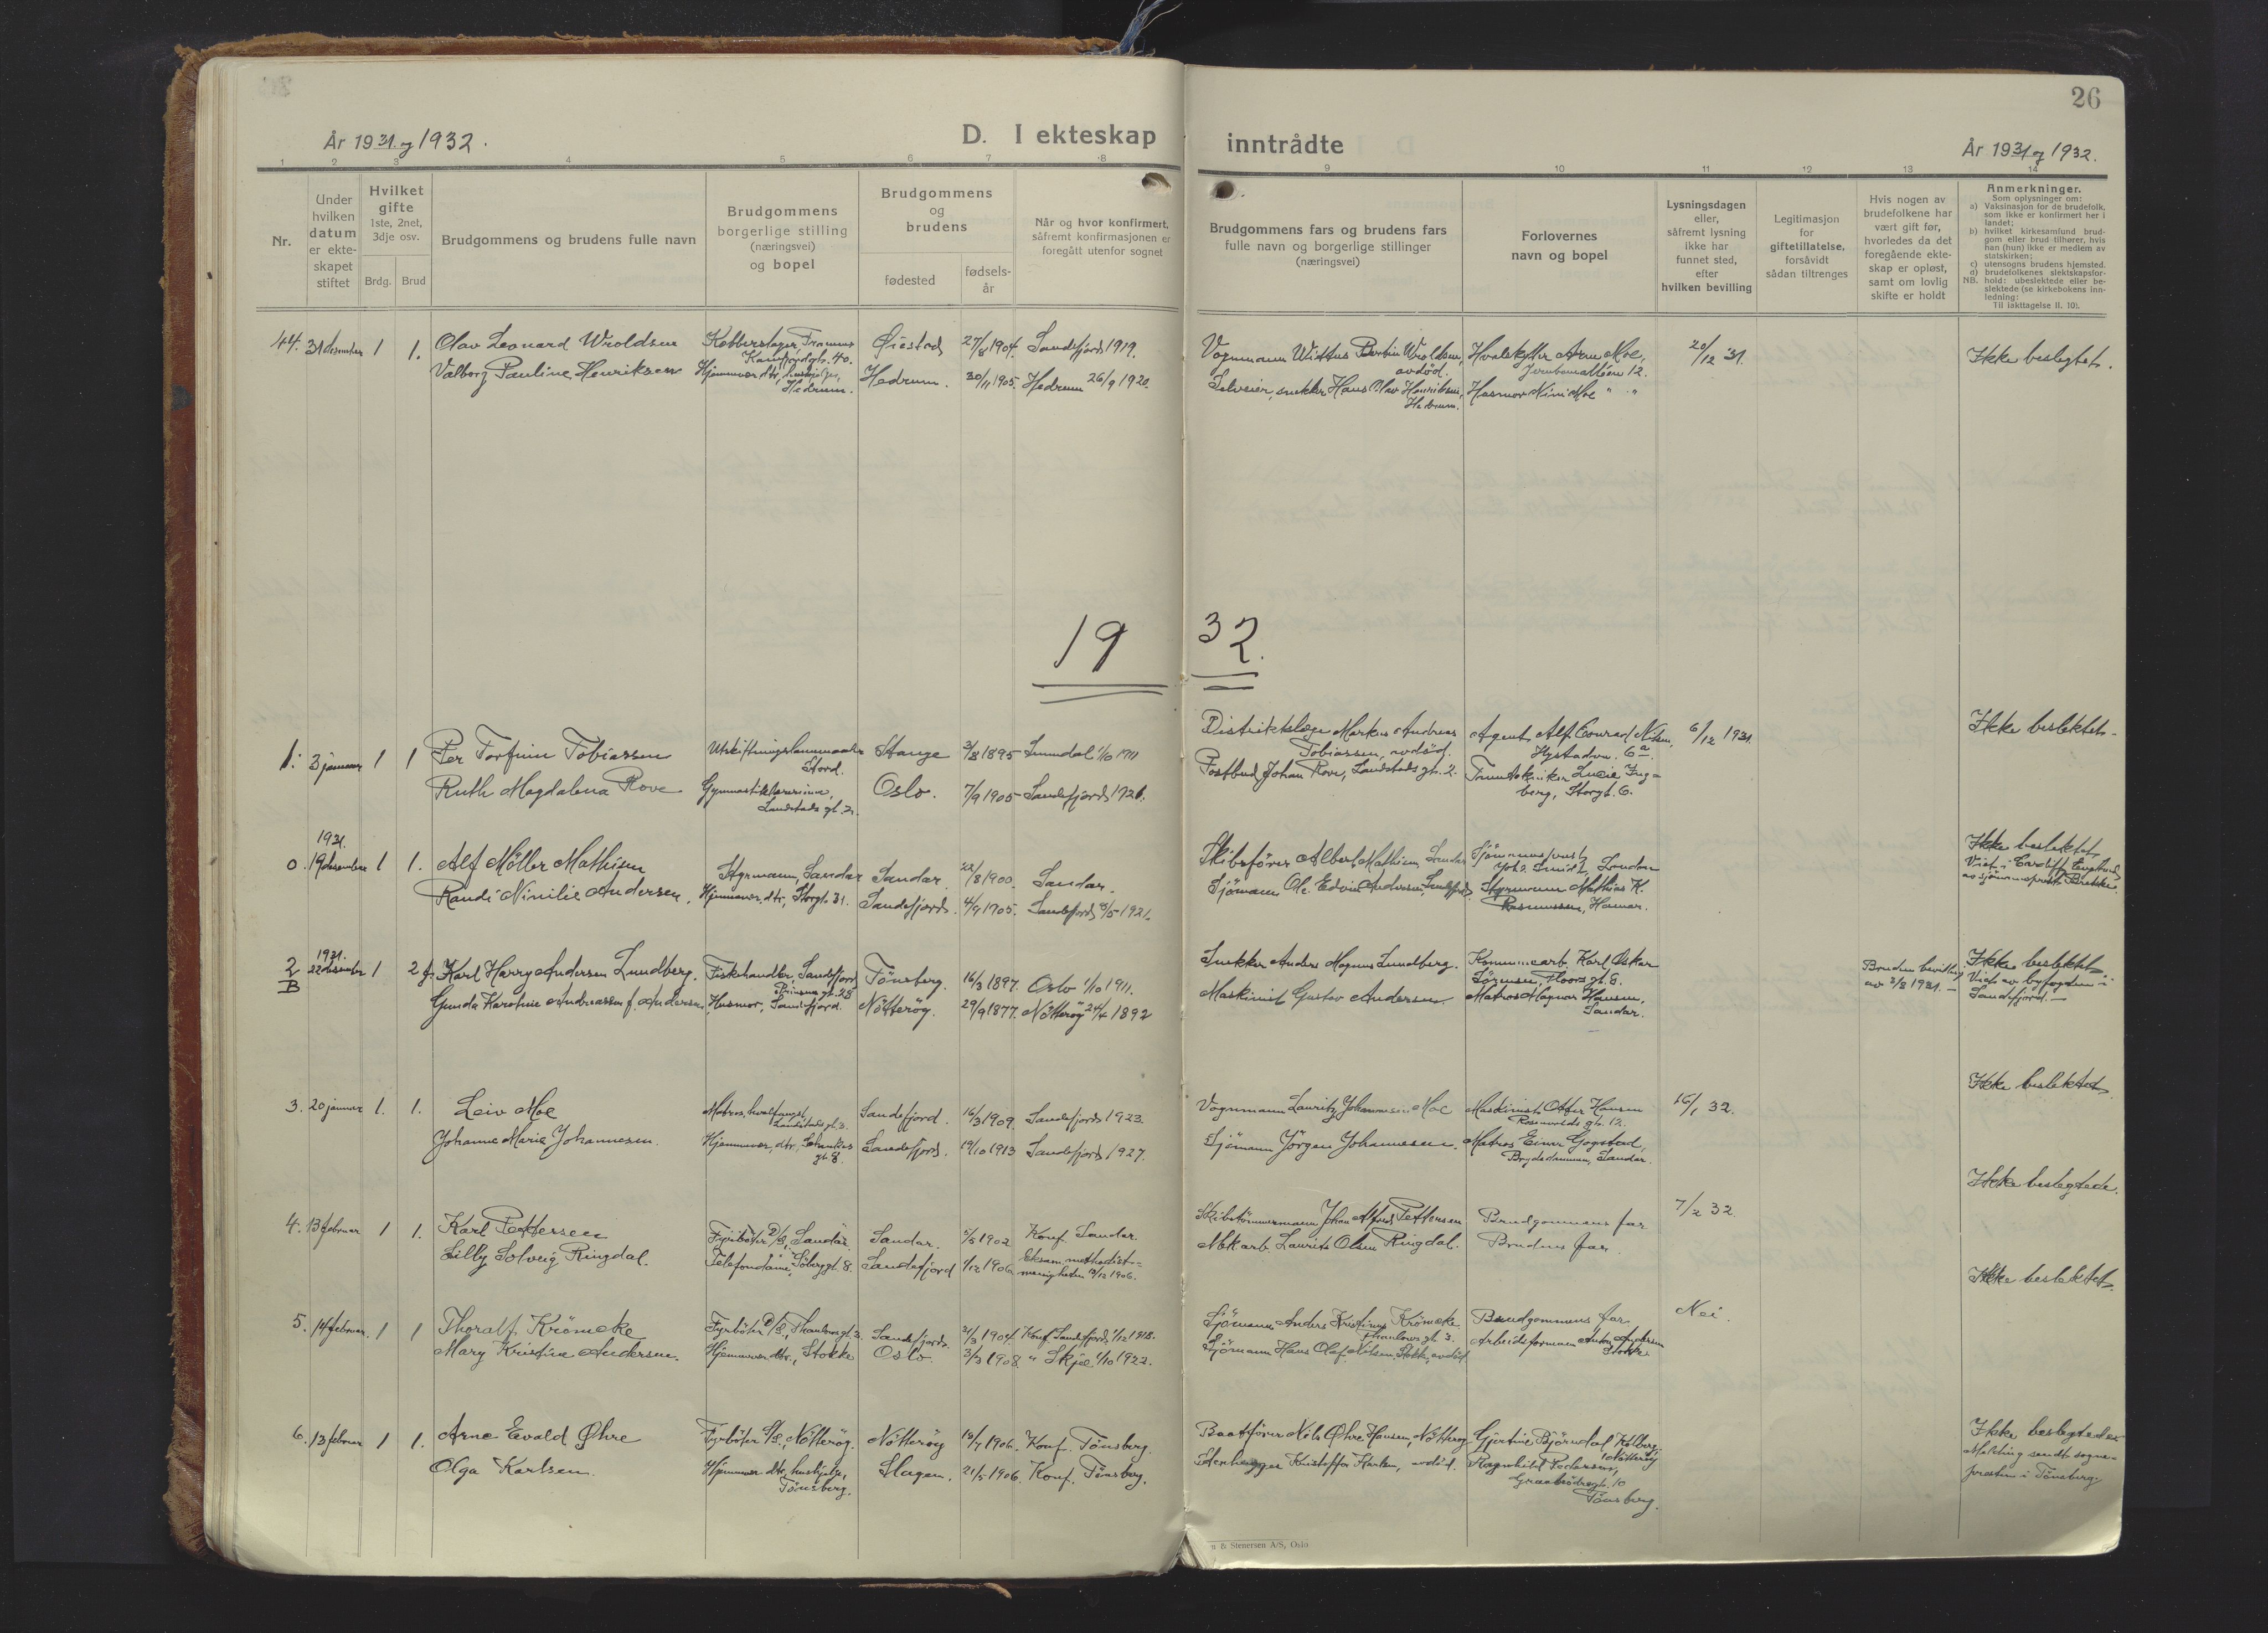 26
År 1931 og 1932.
D. I ekteskap inntrådte
År 1931 og 1932.
1 2 3 4 5 6 7 8 9 10 11 12 13 14
Nr.
Under hvilken datum er ekteskapet stiftet
Hvilket gifte 1ste, 2net, 3dje osv.
Brdg. Brud
Brudgommens og brudens fulle navn
Brudgommens borgerlige stilling (næringsvei) og bopel
Brudgommens og brudens
fødested
fødselsår
Når og hvor konfirmert, såfremt konfirmasjonen er foregått utenfor sognet
Brudgommens fars og brudens fars fulle navn og borgerlige stillinger (næringsvei)
Forlovernes navn og bopel
Lysningsdagen eller, såfremt lysning ikke har funnet sted, efter hvilken bevilling
Legitimasjon for giftetillatelse, forsåvidt sådan tiltrenges
Hvis nogen av brudefolkene har vært gift før, hvorledes da det foregående ekteskap er opløst, samt om lovlig skifte er holdt
Anmerkninger.
Som oplysninger om:
a) Vaksinasjon for de brudefolk, som ikke er konfirmert her i landet;
b) hvilket kirkesamfund brudgom eller brud tilhører, hvis han (hun) ikke er medlem av statskirken;
c) utensogns brudens hjemsted.
d) brudefolkenes slektskapsforhold: ubeslektede eller beslektede (se kirkebokens innledning:
NB.
Til iakttagelse II. 10).
44. 31 desember 1 1. Olav Leonard Wroldsen Kobberslager, Framnes Øiestad 27/8 1904. Sandefjord 1919. Vognmann Bertin Wroldsen, Hvalskytter Arne Moe, 20/12 31. Ikke beslegtet.
Kamfjordgt. 40. avdöd. Jernbanealléen 12.
Valborg Pauline Henriksen Hjemmev. dtr, Hedrum. 30/11 1905. Hedrum 26/9 1920. Selveier, snekker Hans Olav Henriksen, Husmor Nini Moe " "
Hedrum. Hedrum.
19 32.
1. 3 januar 1 1 Per Torfinn Tobiassen Utskiftningslandmaaler Stange 3/8 1895 Sunndal 1/10 1911 Distriktslæge Markus Andreas Agent Alf Conrad Nilsen, 6/12 1931. Ikke beslektet.
Stord. Tobiassen, avdöd. Hystadvn. 6a.
Ruth Magdalena Rove Gymnastiklærerinne, Oslo. 7/9 1905 Sandefjord 1920. Postbud Johan Rove, Landstads gt. 2. Lucie Inga
Landstads gt. 2. berg, Storgt. 6.
1931.
0. 19 desember 1 1. Alf Möller Mathisen Styrmann, Sandar Sandar. 22/8 1900. Sandar. Skibsförer Albert Mathisen, Sandar Sjömannsprest Ikke beslektet
London Viet i Cardiff, England
av sjömannsprest
Randi Minilie Andersen. Hjemmev. dtr, Storgt. 31. Sandefjord. 4/9 1905. Sandefjord 1921. Sjömann Ole Edvin Andersen, Sandefjord. Styrmann Mathias K.
Rasmussen, Hamar.
1931.
2 22 desember 1 2 g. Karl Harry Andersen Lundberg. Fiskehandler, Sandefjord Tönsberg. 16/3 1897. Oslo 1/10 1911. Snekker Anders Magnus Lundberg. Kommunearb. Karl Oskar Bruden bevilling Ikke beslektet.
B Prinsens gt. Sörensen, av 3/8 1931. Viet av byfogden i
Gunda Karoline Andreassen f. Andersen Husmor, Sandefjord. Nötteröy. 29/9 1877. Nötteröy 24/4 1892 Maskinist Gustav Andersen. Matros Magnar Hansen, Sandefjord.
Sandar.
3. 20 januar 1. 1. Leiv Moe Matros, hvalfangst Sandefjord. 16/3 1909. Sandefjord 1923. Vognmann Lauritz Johannessen Moe Maskinist Otter Hansen 16/1 32. Ikke beslektet
Landstads gt. 3. Rosenvolds gt. 12.
Johanne Marie Johannesen. Hjemmev. dtr, Sandefjord. 19/10 1913 Sandefjord 1927. Sjömann Jörgen Johannesen. Matros Einar Gogstad,
gt. 8. Sandar.
4. 13 februar 1 1. Karl Pettersen Fyrböter D/S, Sandar. Sandar. 5/5 1902 Konf. Sandar. Skibstömmermann Johan Alfred Pettersen Brudgommens far 7/2 32. Ikke beslegtede.
Lilly Solveig Ringdal. Telefondame, gt. 8. Sandefjord 1/12 1906 Eksam. methodist-
menigheten Laurits Olsen Ringdal. Brudens far.
5. 14 februar. 1 1 Thoralf Krömcke Fyrböter D/S, Thaulowsgt. 3. Sandefjord. 2/3 1904. Konf. Sandefjord 1/12 1918. Sjömann Anders Kristinus Krömcke Brudgommens far Nei. Ikke beslektet.
Thaulows gt. 3.
Mary Kristine Andersen. Hjemmev. dtr., Stokke Oslo. 3/3 1908. " Skjee 1/10 1922. Sjömann Hans Olaf Nilsen, Stokke, avdöd Arbeidsformann Anton Andersen
Stokke.
6. 13 februar 1 1. Arne Evald Øhre Fyrböter S/S, Nötteröy. Nötteröy 18/7 1906. Konf. Tönsberg. Baatförer Nils Øhre Hansen, Nötteröy Gjertine Björndal Kolberg, Ikke beslegtede
Nötteröy Melding sendt sogne-
Olga Karlsen. Hjemmev. dtr, hushjelp, Slagen. 21/5 1906. Konf. Tönsberg. Stenhugger Kristoffer Karlsen, avdöd. Ragnhild Pedersen, presten i Tönsberg.
Tönsberg. Graabrödregt. 10
Tönsberg.
& Stenersen A/S, Oslo